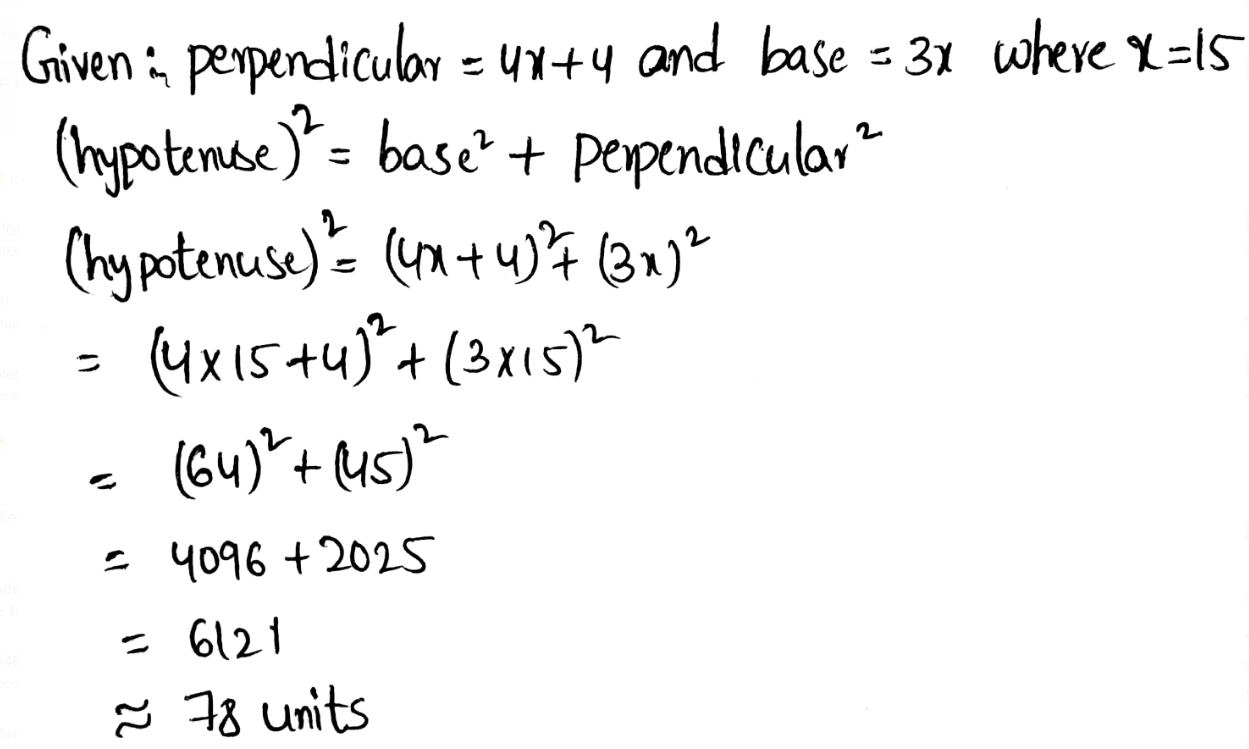 Given: perpendicular = 4x+4 and base = 3x where x=15
(hypotenuse)² = base² + perpendicular²
(hypotenuse)² = (4x+4)² + (3x)²
= (4x15+4)² + (3x15)²
= (64)² + (45)²
= 4096 + 2025
= 6121
≈ 78 units